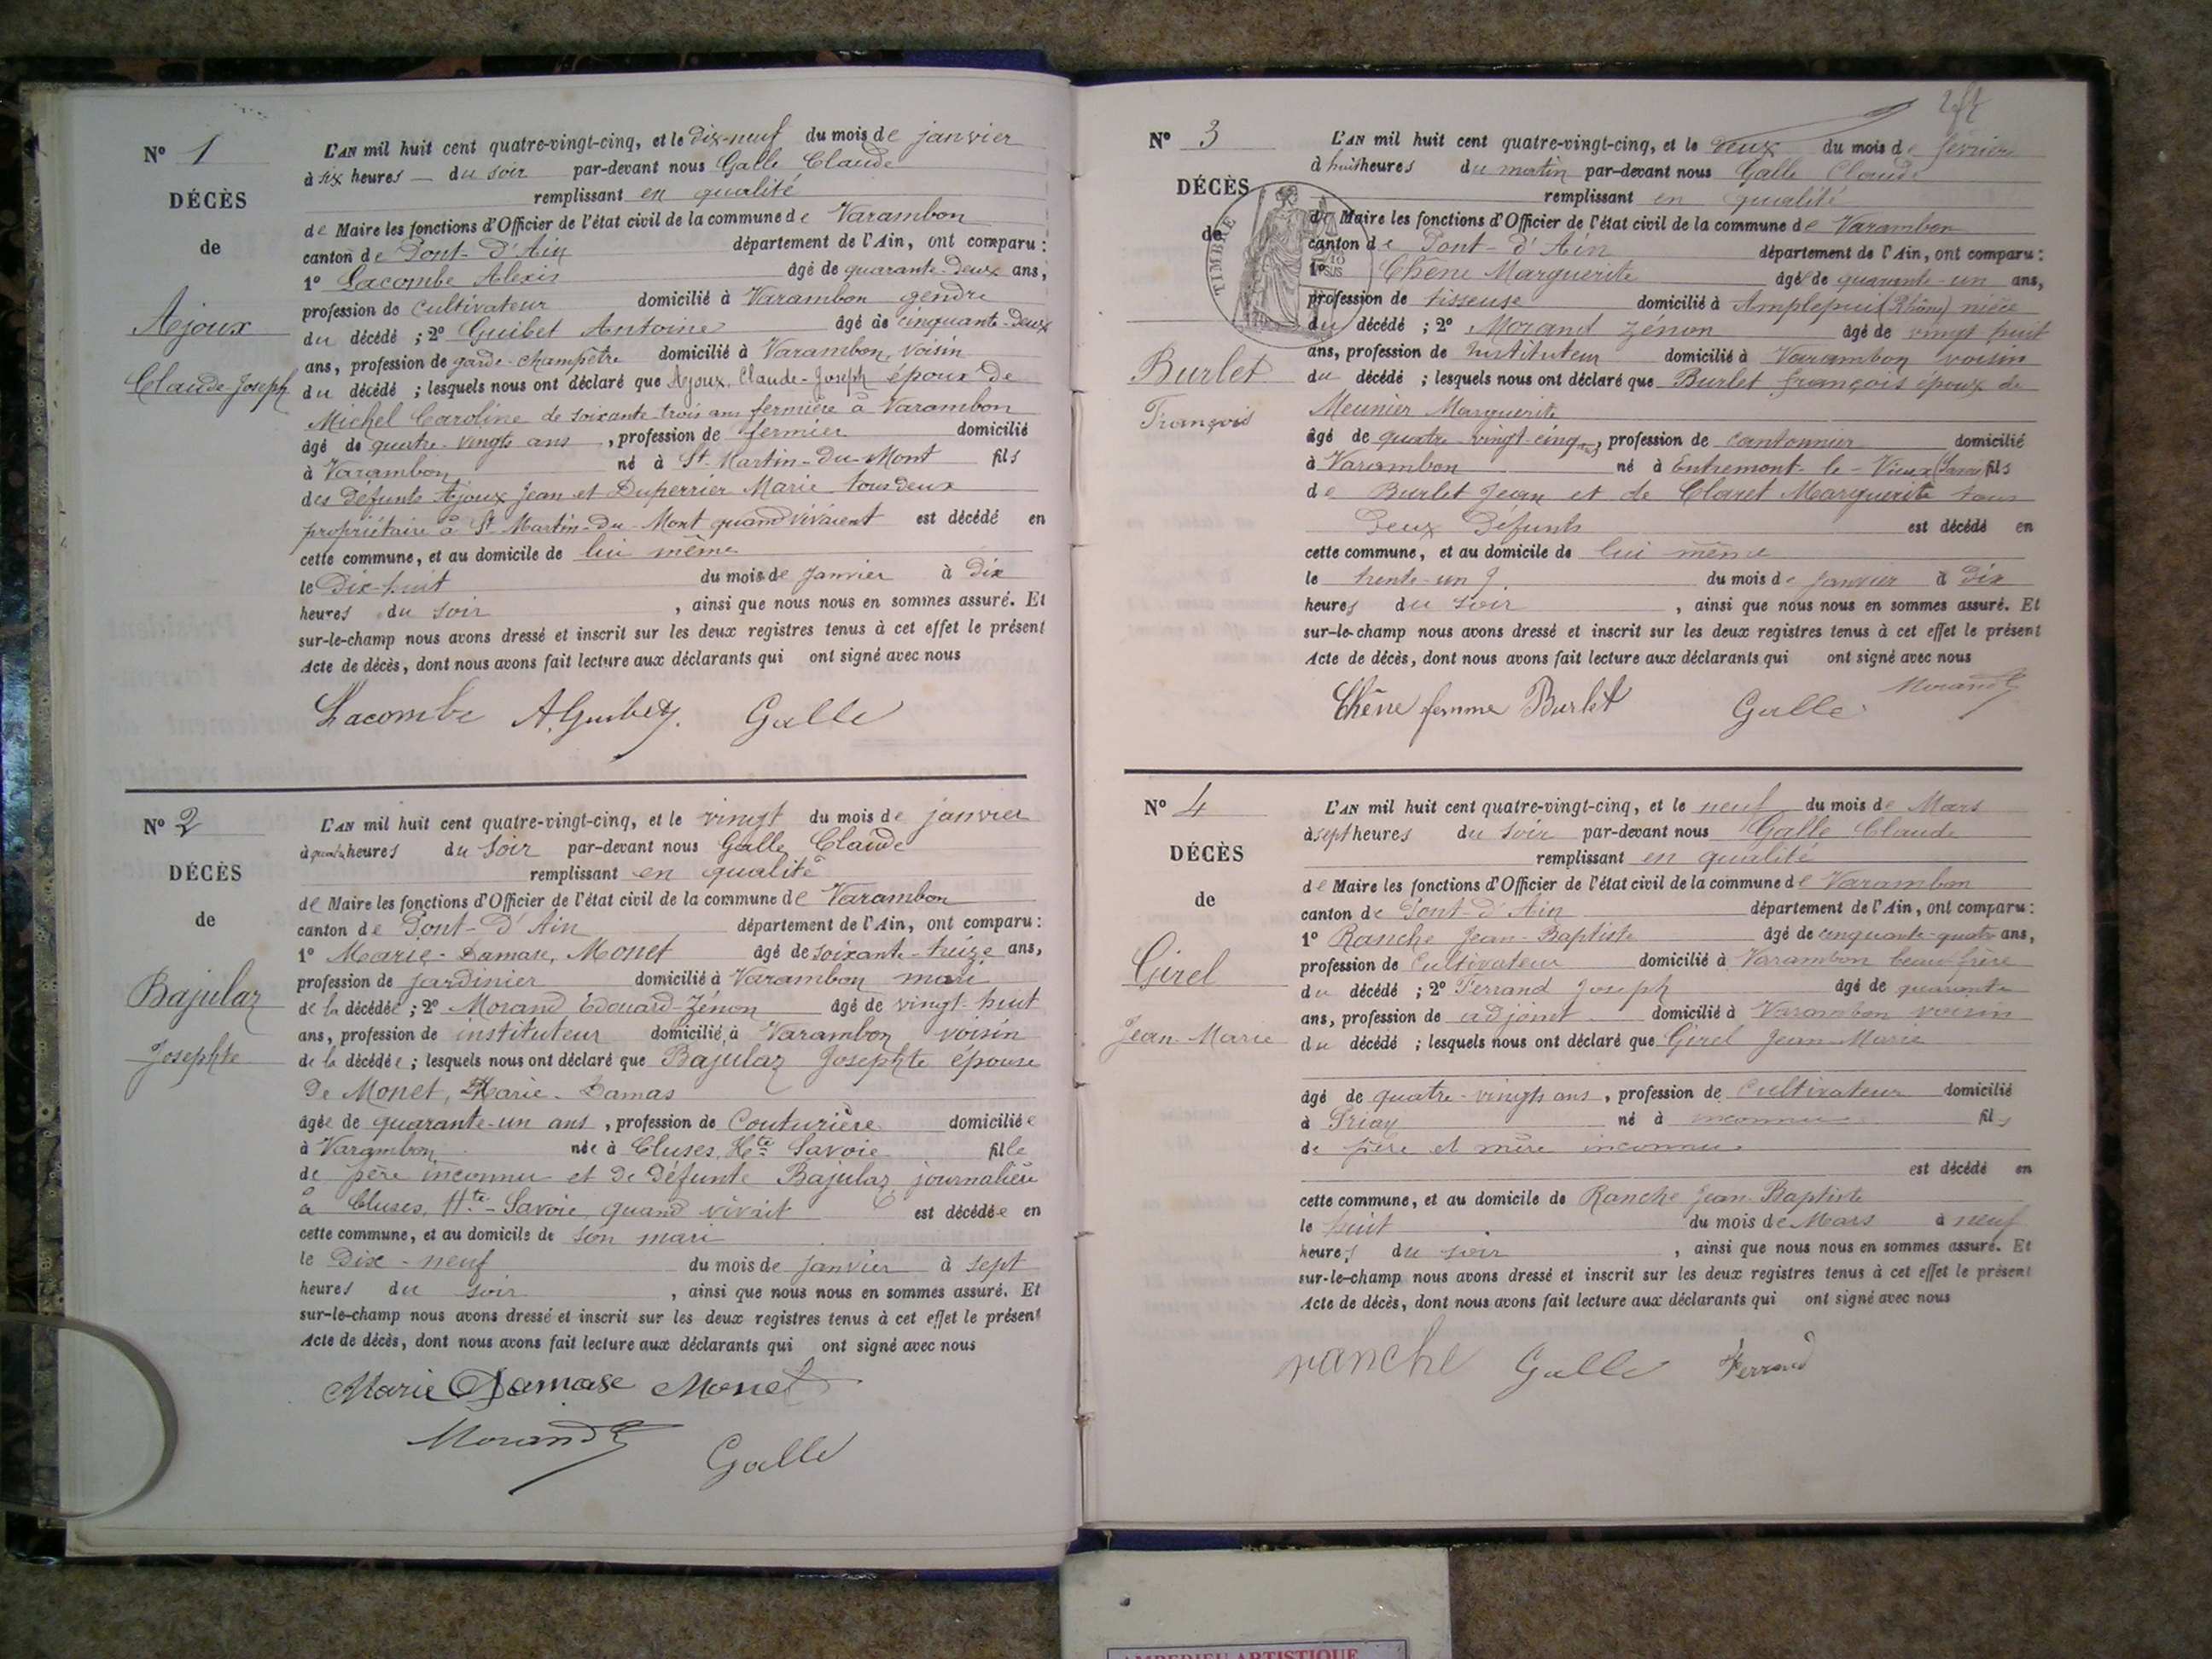 N° 1
DÉCÈS
de
Ajoux
Claude-Joseph
L'AN mil huit cent quatre-vingt-cinq, et le dix-neuf du mois de janvier
à six heures du soir par-devant nous Galle Claude
remplissant en qualité
de Maire les fonctions d'Officier de l'état civil de la commune de Varambon
canton de Pont-d'Ain département de l'Ain, ont comparu :
1° Lacombe Alexis âgé de quarante-deux ans,
profession de cultivateur domicilié à Varambon gendre
du décédé ; 2° Guibet Antoine âgé de cinquante-deux
ans, profession de garde-champêtre domicilié à Varambon, voisin
du décédé ; lesquels nous ont déclaré que Ajoux, Claude-Joseph époux de
Michel Caroline de soixante-trois ans fermière à Varambon
âgé de quatre-vingts ans, profession de fermier domicilié
à Varambon né à St-Martin-du-Mont fils
des défunts Ajoux Jean et Duperrier Marie tous deux
propriétaire à St-Martin-du-Mont quand vivaient est décédé en
cette commune, et au domicile de lui même
le Dix-huit du mois de janvier à Dix
heures du soir, ainsi que nous nous en sommes assuré. Et
sur-le-champ nous avons dressé et inscrit sur les deux registres tenus à cet effet le présent
Acte de décès, dont nous avons fait lecture aux déclarants qui ont signé avec nous
Lacombe A. Guibet Galle
N° 2
DÉCÈS
de
Bajulaz
Josephte
L'AN mil huit cent quatre-vingt-cinq, et le vingt du mois de janvier
à heures du soir par-devant nous Galle Claude
remplissant en qualité
de Maire les fonctions d'Officier de l'état civil de la commune de Varambon
canton de Pont-d'Ain département de l'Ain, ont comparu :
1° Marie-Damase, Monet âgé de soixante-treize ans,
profession de jardinier domicilié à Varambon mari
de la décédée ; 2° Morand Edouard-Zénon âgé de vingt-huit
ans, profession de instituteur domicilié à Varambon voisin
de la décédée ; lesquels nous ont déclaré que Bajulaz Josephte épouse
de Monet, Marie-Damas
âgée de quarante-un ans, profession de Couturière domiciliée
à Varambon née à Cluses, Hte Savoie fille
de père inconnu et de défunte Bajulaz journalière
à Cluses, Hte-Savoie, quand vivait est décédée en
cette commune, et au domicile de son mari
le Dix-neuf du mois de janvier à sept
heures du soir, ainsi que nous nous en sommes assuré. Et
sur-le-champ nous avons dressé et inscrit sur les deux registres tenus à cet effet le présent
Acte de décès, dont nous avons fait lecture aux déclarants qui ont signé avec nous
Marie Damase Monet
Morand
Galle
N° 3
DÉCÈS
de
TIMBRE
Burlet
François
L'AN mil huit cent quatre-vingt-cinq, et le deux du mois de février
à huit heures du matin par-devant nous Galle Claude
remplissant en qualité
de Maire les fonctions d'Officier de l'état civil de la commune de Varambon
canton de Pont-d'Ain département de l'Ain, ont comparu :
1° Chêne Marguerite âgé de quarante-un ans,
profession de tisseuse domicilié à Amplepuis (Rhône) nièce
du décédé ; 2° Morand Zénon âgé de vingt huit
ans, profession de instituteur domicilié à Varambon voisin
du décédé ; lesquels nous ont déclaré que Burlet François époux de
Meunier Marguerite
âgé de quatre vingt cinq, profession de cantonnier domicilié
à Varambon né à Entremont-le-Vieux (Savoie) fils
de Burlet Jean et de Claret Marguerite tous
deux défunts est décédé en
cette commune, et au domicile de lui même
le trente-un du mois de janvier à dix
heures du soir, ainsi que nous nous en sommes assuré. Et
sur-le-champ nous avons dressé et inscrit sur les deux registres tenus à cet effet le présent
Acte de décès, dont nous avons fait lecture aux déclarants qui ont signé avec nous
Chêne femme Burlet Galle Morand
N° 4
DÉCÈS
de
Girel
Jean-Marie
L'AN mil huit cent quatre-vingt-cinq, et le neuf du mois de Mars
à sept heures du soir par-devant nous Galle Claude
remplissant en qualité
de Maire les fonctions d'Officier de l'état civil de la commune de Varambon
canton de Pont-d'Ain département de l'Ain, ont comparu :
1° Ranche Jean-Baptiste âgé de cinquante-quatre ans,
profession de Cultivateur domicilié à Varambon beau-frère
du décédé ; 2° Ferrand Joseph âgé de quarante
ans, profession de adjoint domicilié à Varambon voisin
du décédé ; lesquels nous ont déclaré que Girel Jean-Marie
âgé de quatre-vingts ans, profession de Cultivateur domicilié
à Priay né à inconnu fils
de père et mère inconnus
est décédé en
cette commune, et au domicile de Ranche Jean-Baptiste
le huit du mois de Mars à neuf
heures du soir, ainsi que nous nous en sommes assuré. Et
sur-le-champ nous avons dressé et inscrit sur les deux registres tenus à cet effet le présent
Acte de décès, dont nous avons fait lecture aux déclarants qui ont signé avec nous
ranche Galle Ferrand